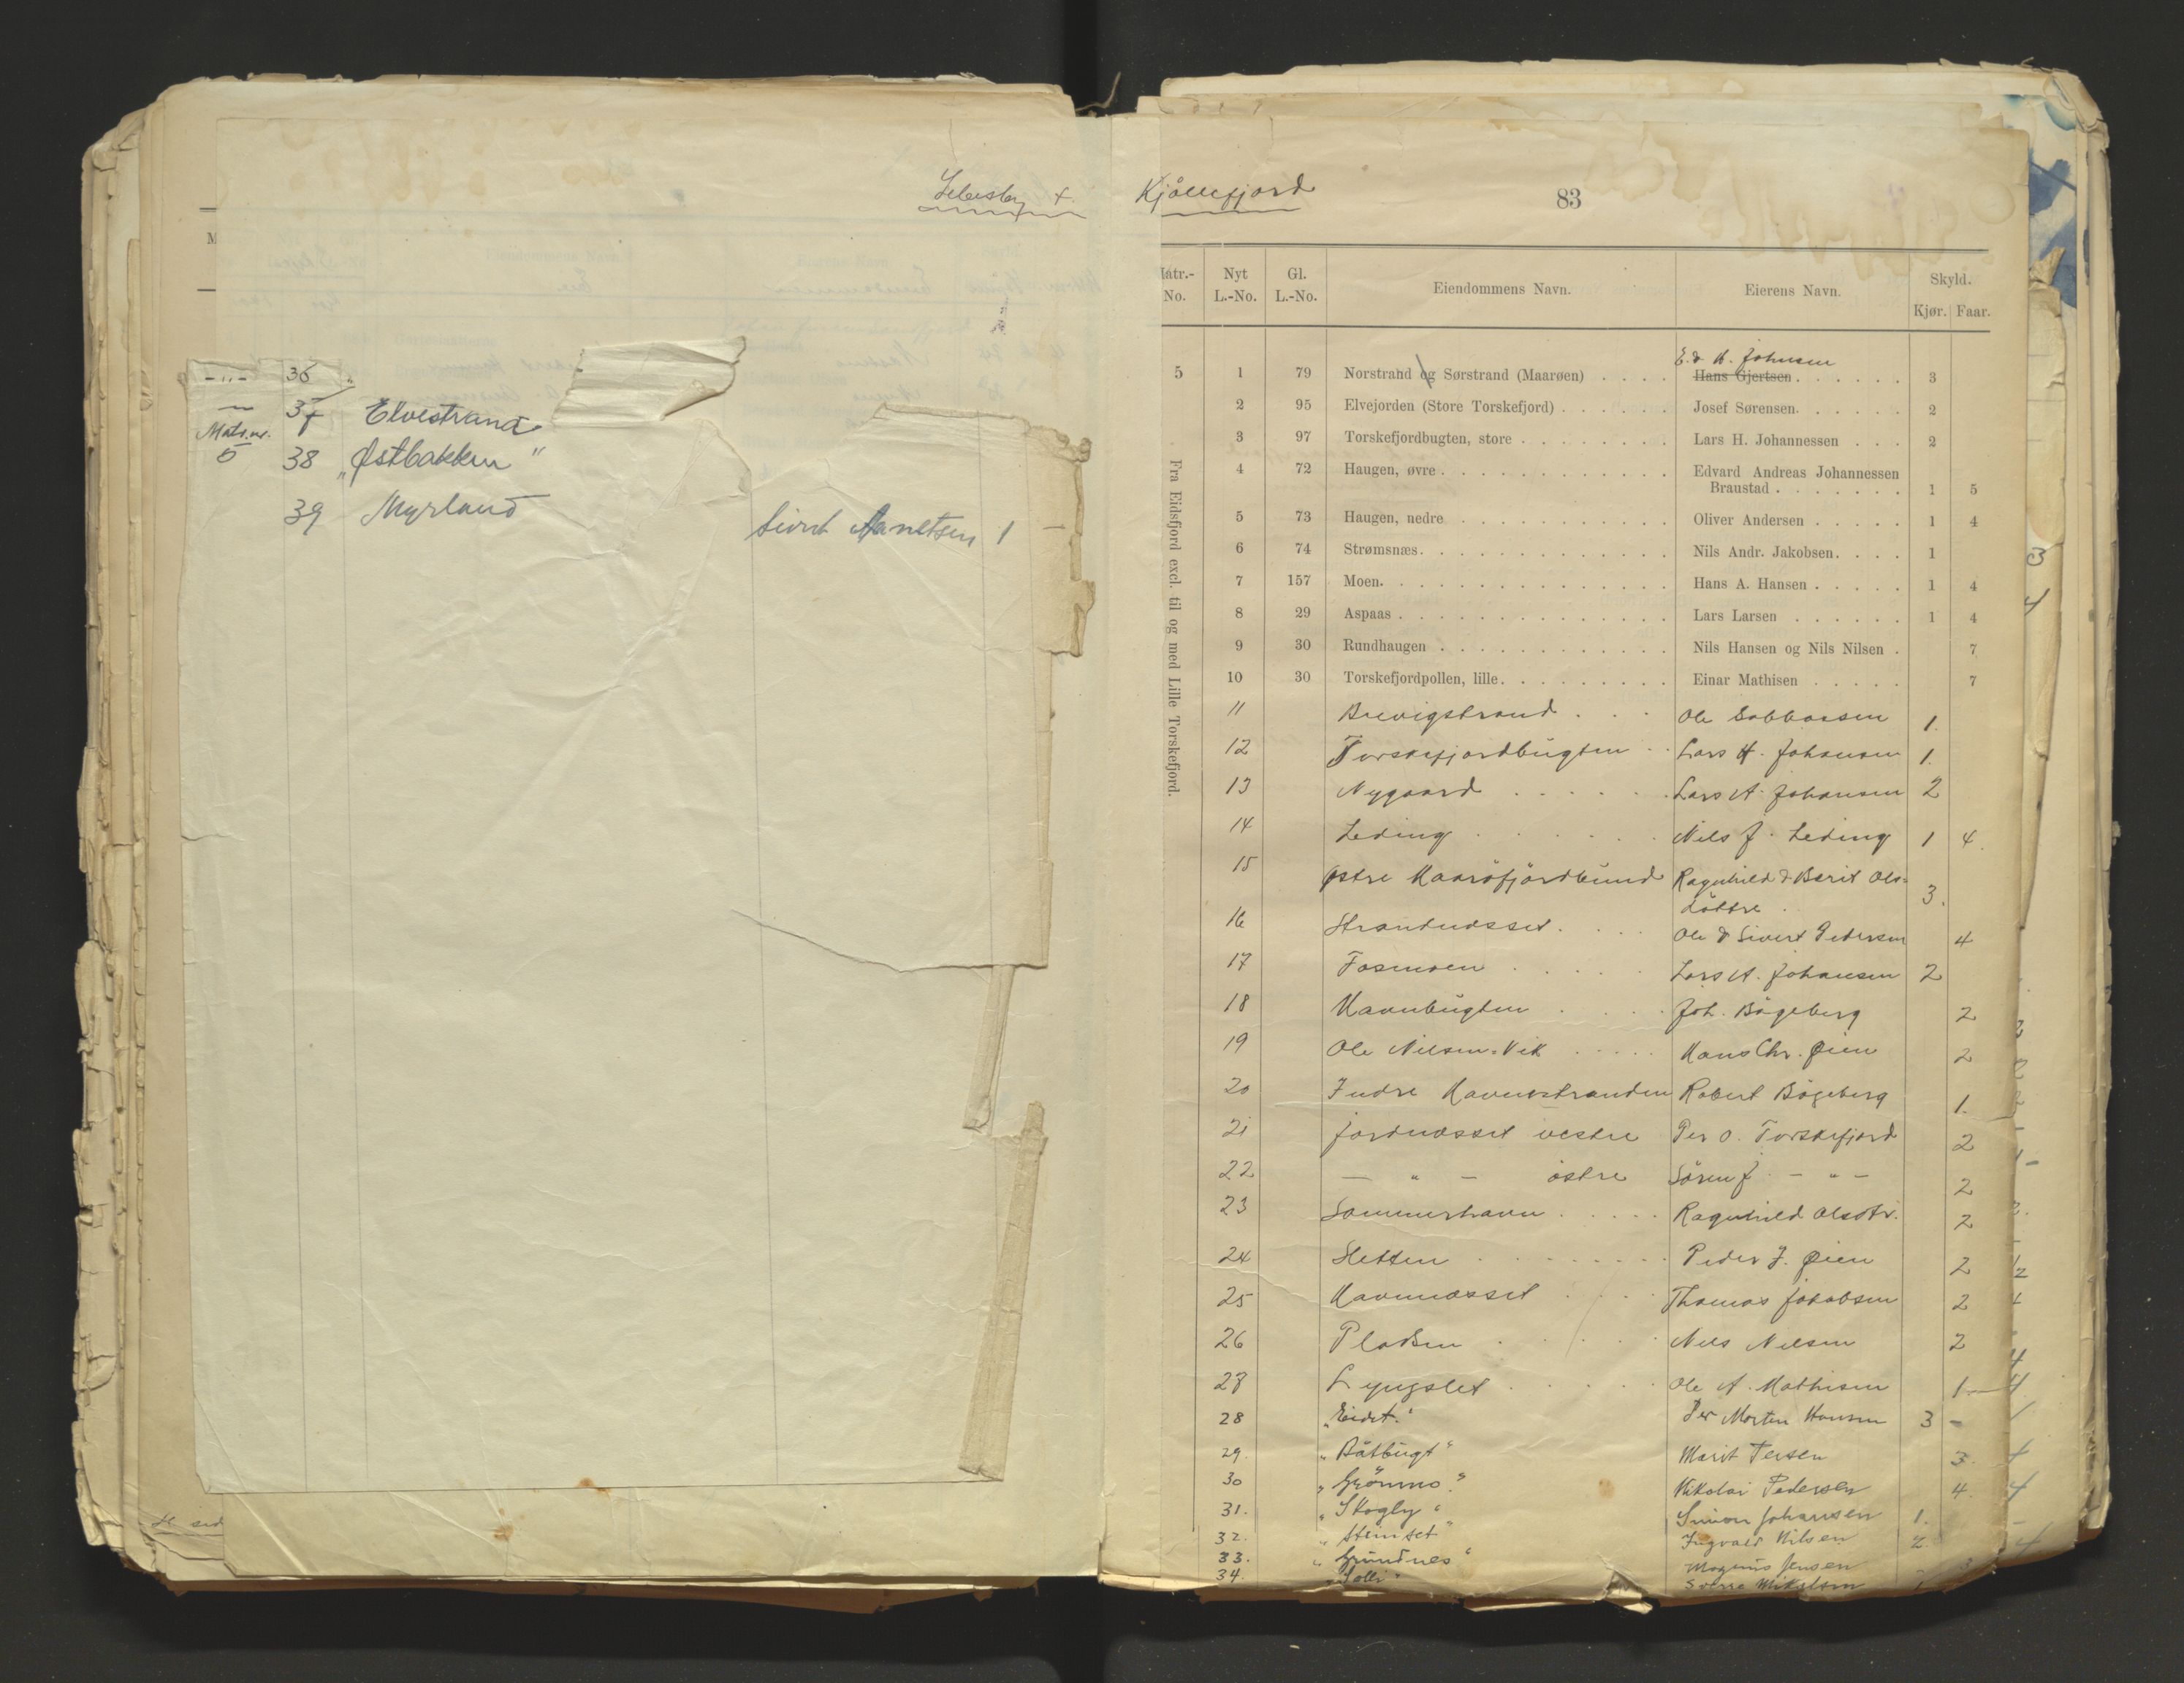 Lebesby +
-"- 36 "
— 37 Elvestrand
Matr.nr.
5 38 "Østbakken"
39 Myrland
Sivert Anretsen 1
Kjöllefjord
83
Matr.-No. Nyt L.-No. Gl. L.-No. Eiendommens Navn. Eierens Navn. Skyld. Kjør. Faar.
Fra Eidsfjord excl. til og med Lille Torskefjord.
E. & H. Johnsen
5 1 79 Norstrand og Sørstrand (Maarøen) Hans Gjertsen 3
2 95 Elvejorden (Store Torskefjord) Josef Sørensen 2
3 97 Torskefjordbugten, store Lars H. Johannessen 2
4 72 Haugen, øvre Edvard Andreas Johannessen
Braustad 1 5
5 73 Haugen, nedre Oliver Andersen 1 4
6 74 Strømsnæs Nils Andr. Jakobsen 1
7 157 Moen Hans A. Hansen 1 4
8 29 Aspaas Lars Larsen 1 4
9 30 Rundhaugen Nils Hansen og Nils Nilsen 7
10 30 Torskefjordpollen, lille Einar Mathisen 7
11 Brevigstrand Ole 1.
12 Torskefjordbugten Lars H. Johansen 1.
13 Nygaard Lars A. Johansen 2
14 Leding Nils J. Leding 1 4.
15 Østre Maaröfjördbund Ragnhild & Berit Ols-
döttre 3.
16 Strandnæsset Ole & Sivert Pedersen 4
17 Fosmoen Lars A. Johansen 2
18 Havnbugten Joh. Bögeberg 2
19 Ole Nilsen-Vik Hans Chr. Øien 2
20 Indre Havnstranden Robert Bögeberg 1.
21 Jordnæsset vestre Per O. Torskefjord 2
22 — " — östre Sören J. — " — 2
23 Sommerhavn Ragnhild Olsdtr. 2
24 Sletten Peder J. Øien 2
25 Havnnæsset Thomas Jakobsen 2
26 Pladsen Nils Nilsen 2
27 Lyngslet Ole A. Mathisen 1
28 "Eidet." Per Morten Hansen 3 -
29. "Båtbugt" Marit Persen 3.
30 "Grönmo." Nikolai Pedersen 4.
31. "Skogly" Simon Johansen 1.
32. "Stenset" Ingvald Nilsen 2.
33. "Grundnes" Magnus Jensen -
34. "Solli" Sverre Mikalsen 1